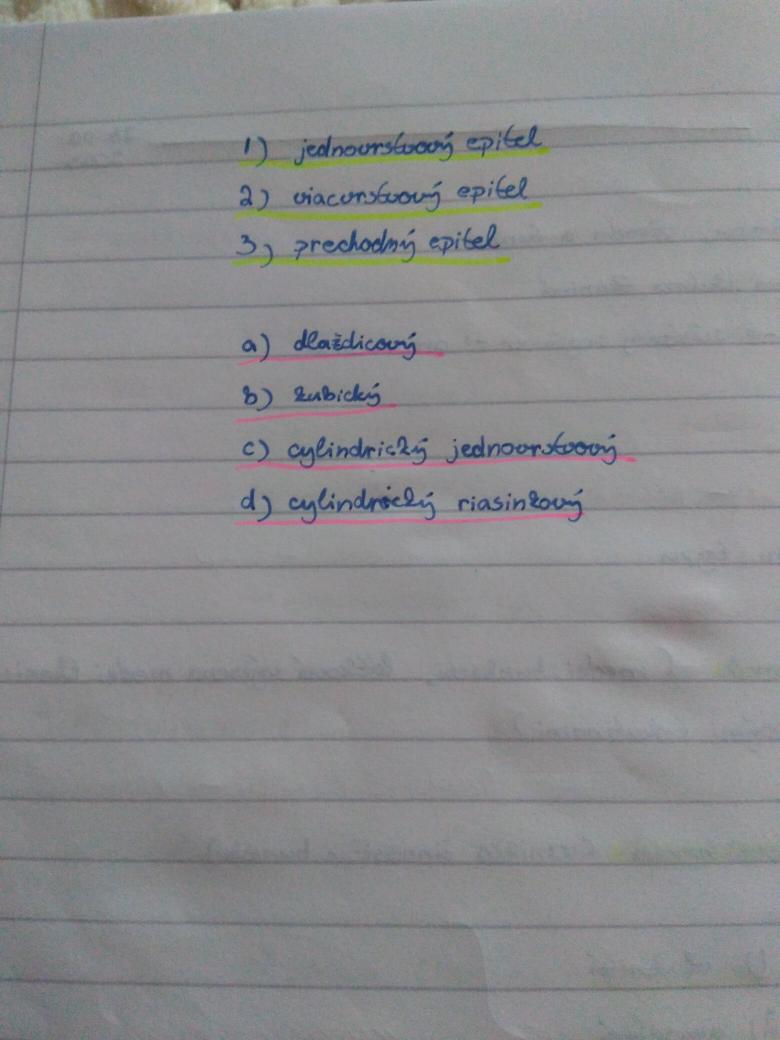 1) jednovrstvový epitel
2) viacvrstvový epitel
3) prechodný epitel
a) dlaždicový
b) kubický
c) cylindrický jednovrstvový
d) cylindrický riasinkový